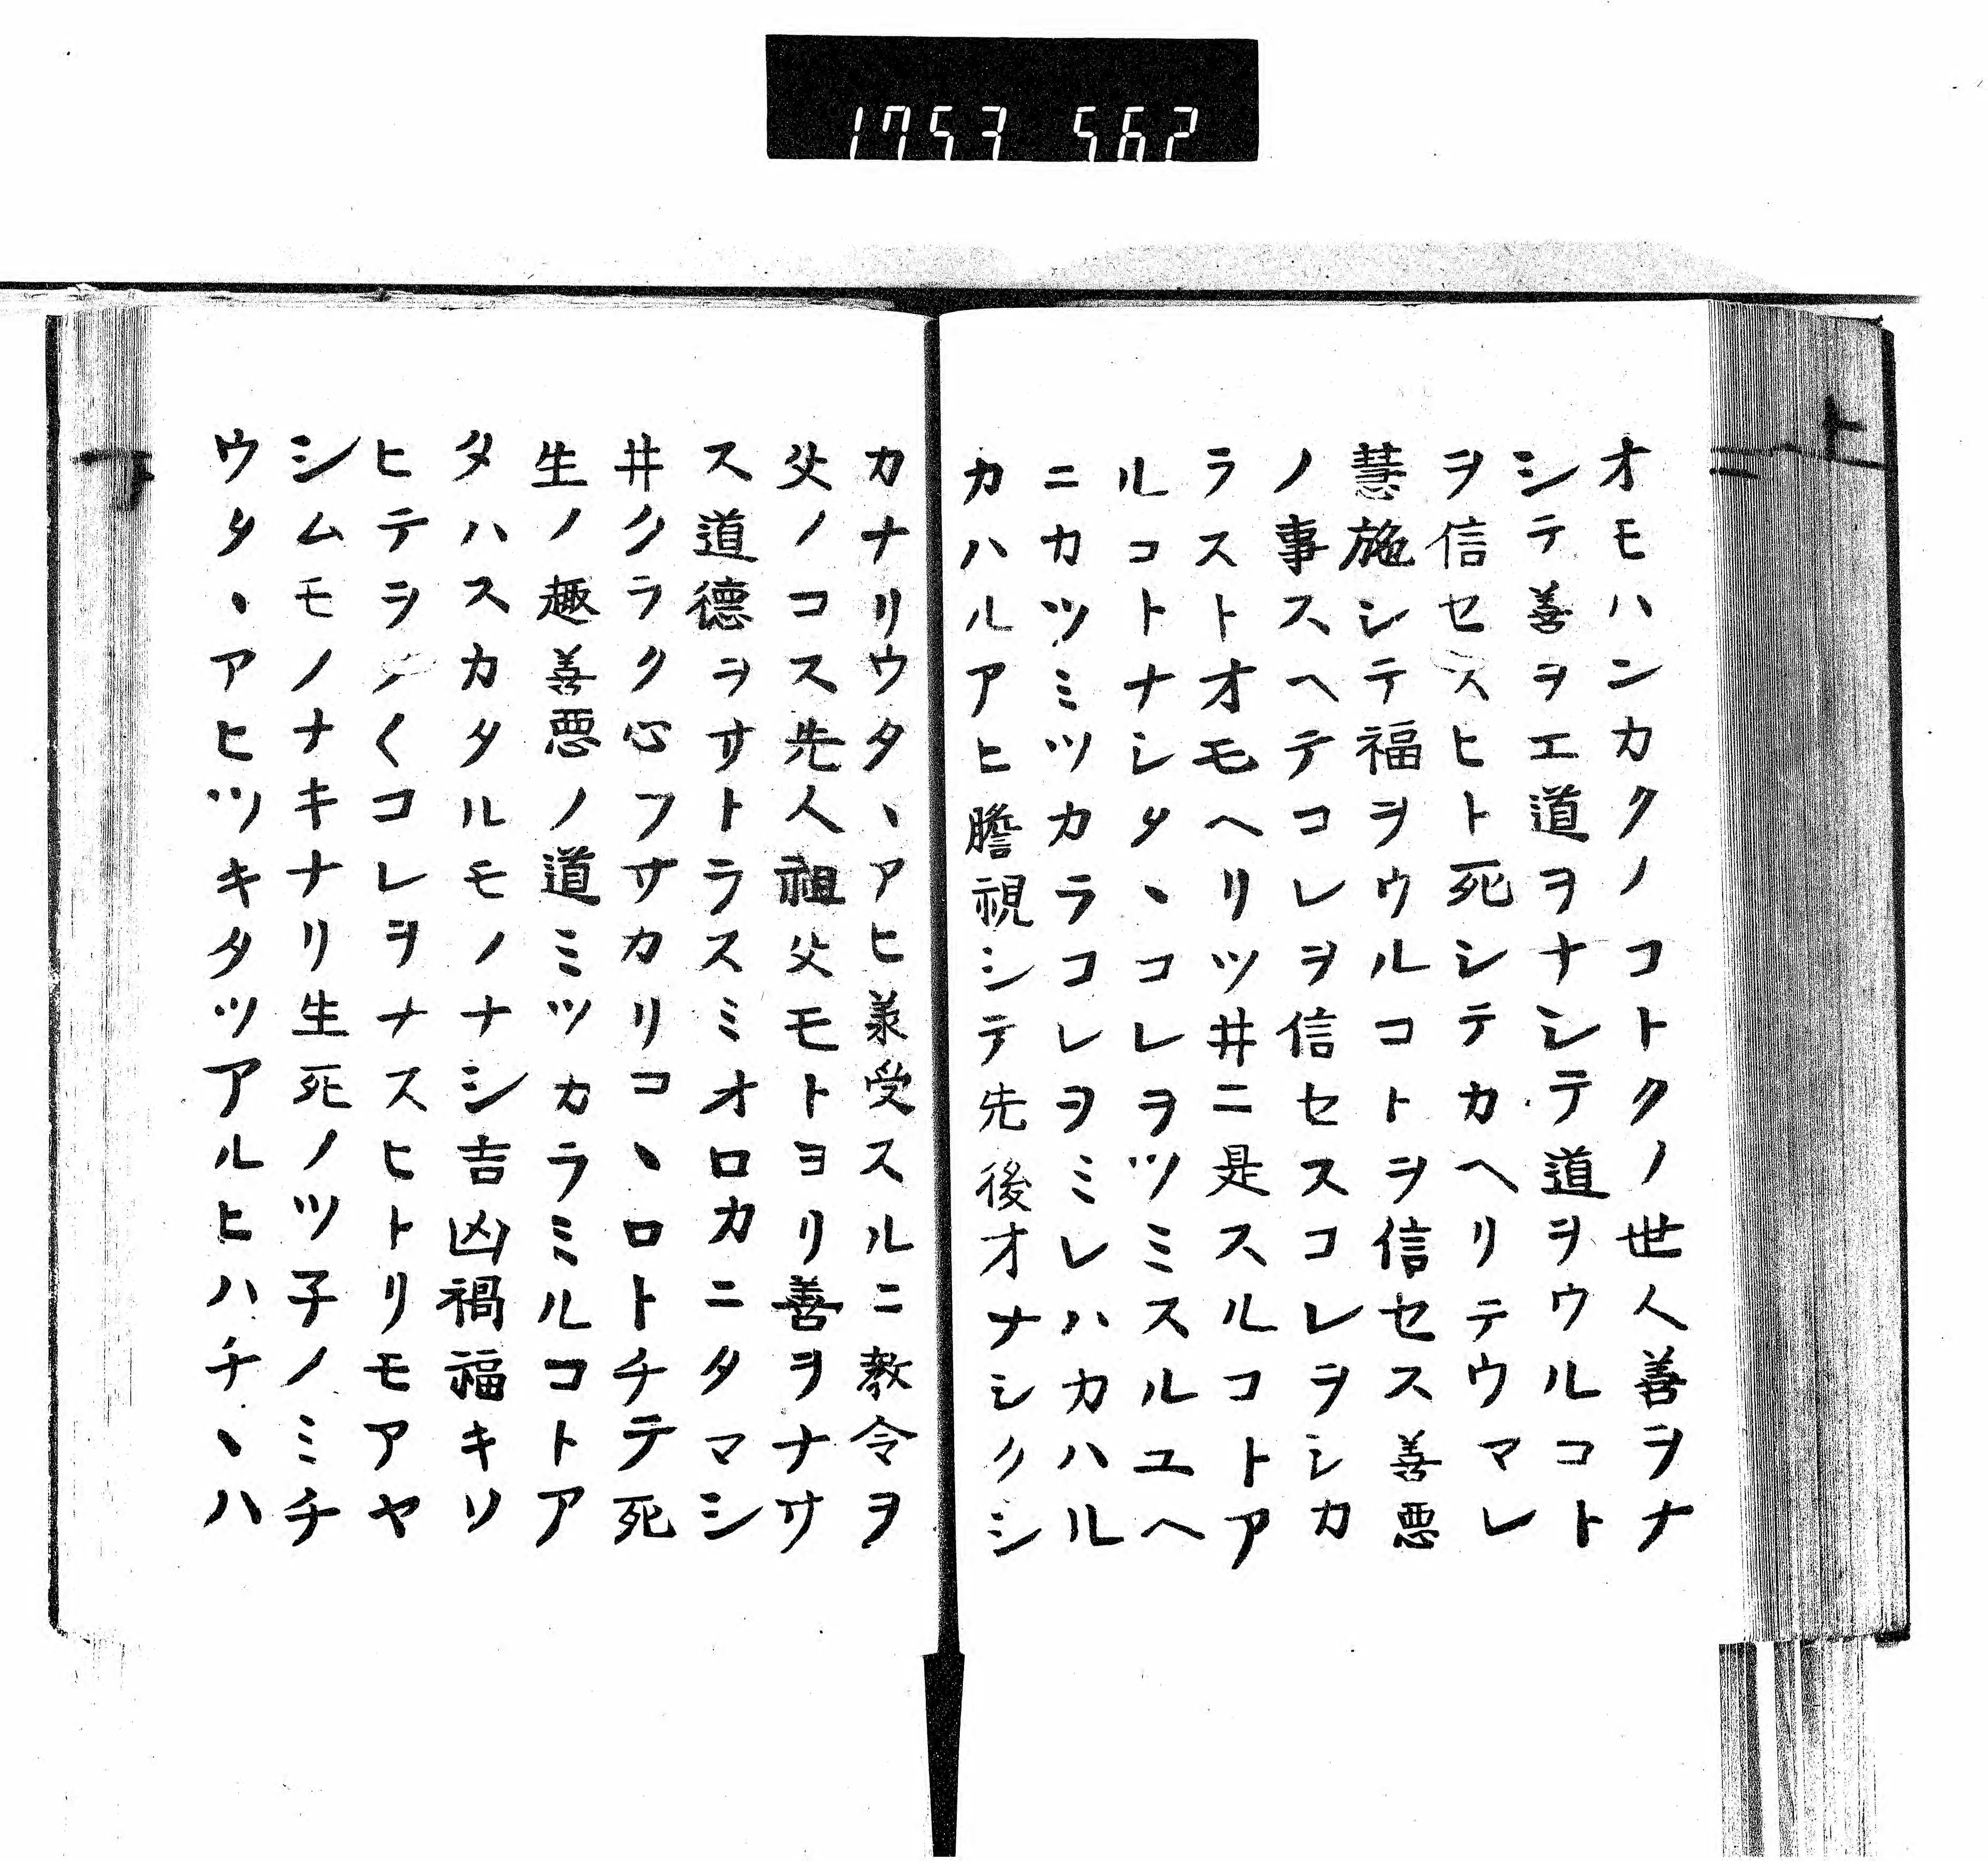 1753 562
オモハンカクノコトクノ世人善ヲナ
シテ善ヲエ道ヲナシテ道ヲウルコト
ヲ信セスヒト死シテカヘリテウマレ
慧施シテ福ヲウルコトヲ信セス善悪
ノ事スヘテコレヲ信セスコレヲシカ
ラストオモヘリツ井ニ是スルコトア
ルコトナシタヽコレヲツミスルユヘ
ニカツミツカラコレヲミレハカハル
カハルアヒ瞻視シテ先後オナシクシ
カナリウタヽアヒ羕受スルニ教令ヲ
父ノコス先人祖父モトヨリ善ヲナサ
ス道德ヲサトラスミオロカニタマシ
井クラク心フサカリコヽロトチテ死
生ノ趣善悪ノ道ミツカラミルコトア
タハスカタルモノナシ吉凶禍福キソ
ヒテヲノ〱コレヲナスヒトリモアヤ
シムモノナキナリ生死ノツ子ノミチ
ウタヽアヒツキタツアルヒハチヽハ